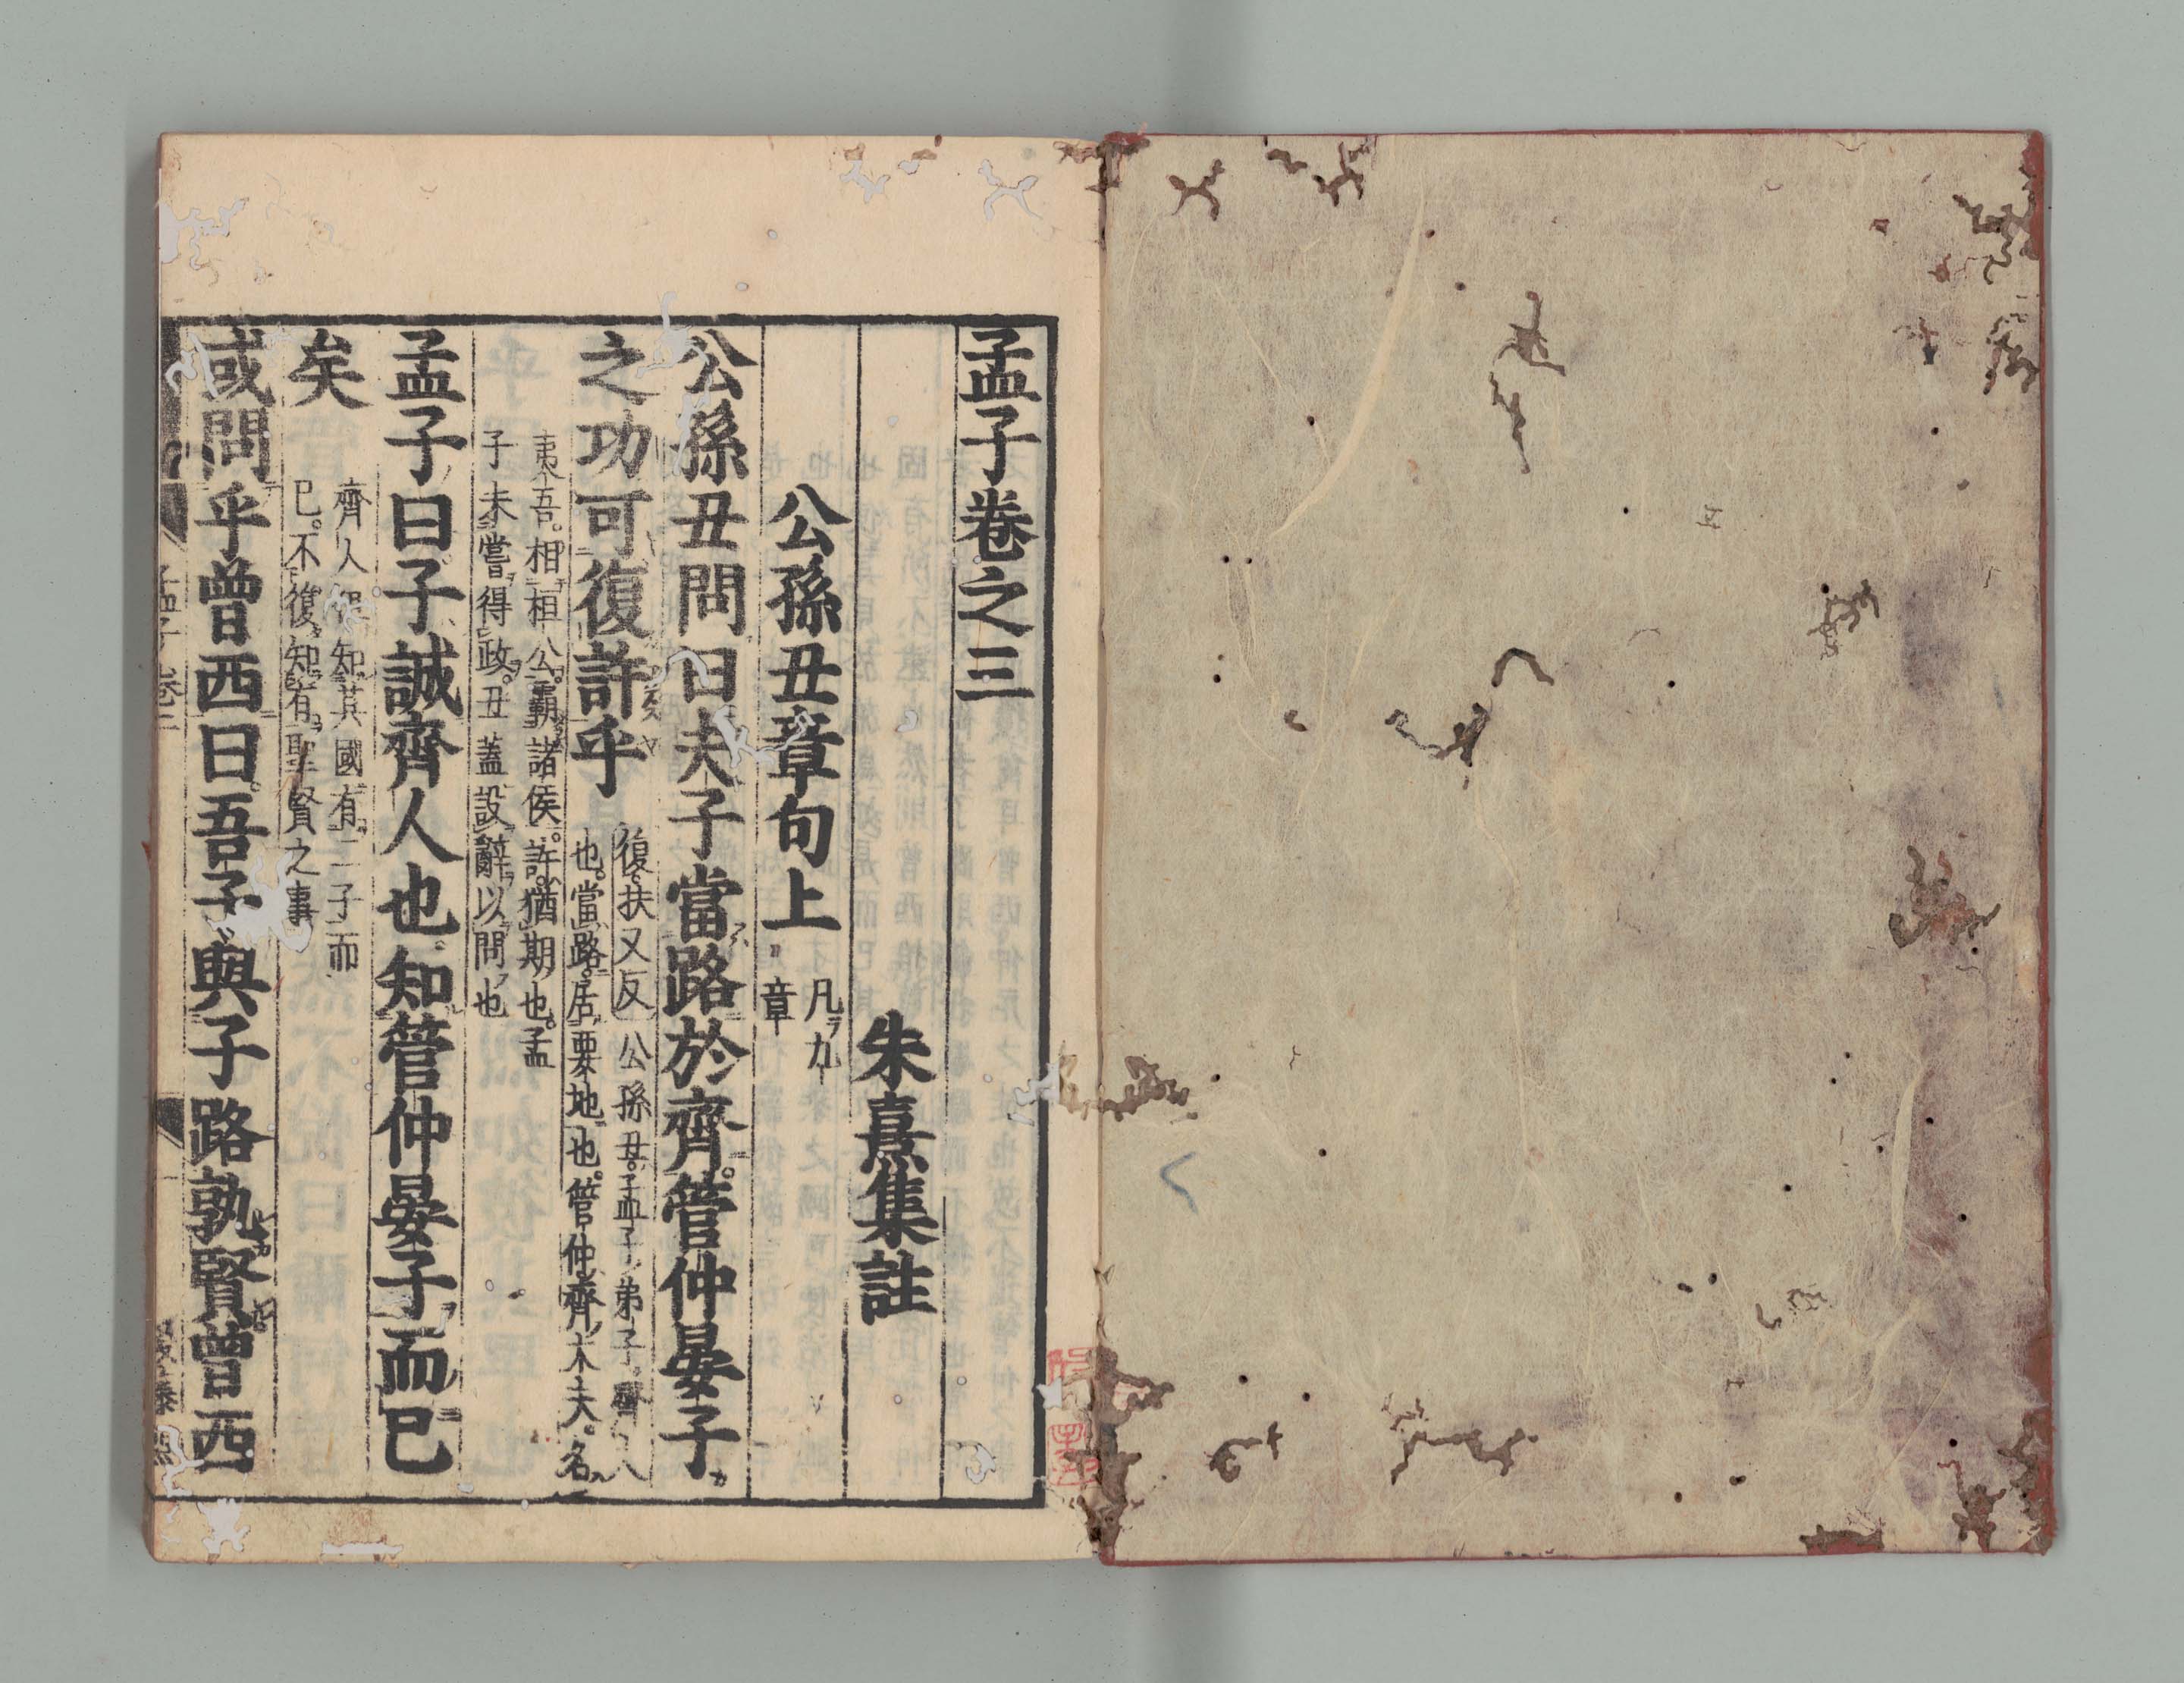 孟子卷之三
朱熹集註
公孫丑章句上
凡九
章
公孫丑問曰夫子當路於齊管仲晏子
之功可復許乎
復扶又反公孫丑孟子弟子齊人
也當路居要地也管仲齊大夫名
夷吾相桓公霸諸侯許猶期也孟
子未嘗得政丑蓋設辭以問也
孟子曰子誠齊人也知管仲晏子而已
矣
齊人但知其國有二子而
已不復知有聖賢之事
或問乎曾西曰吾子與子路孰賢曾西